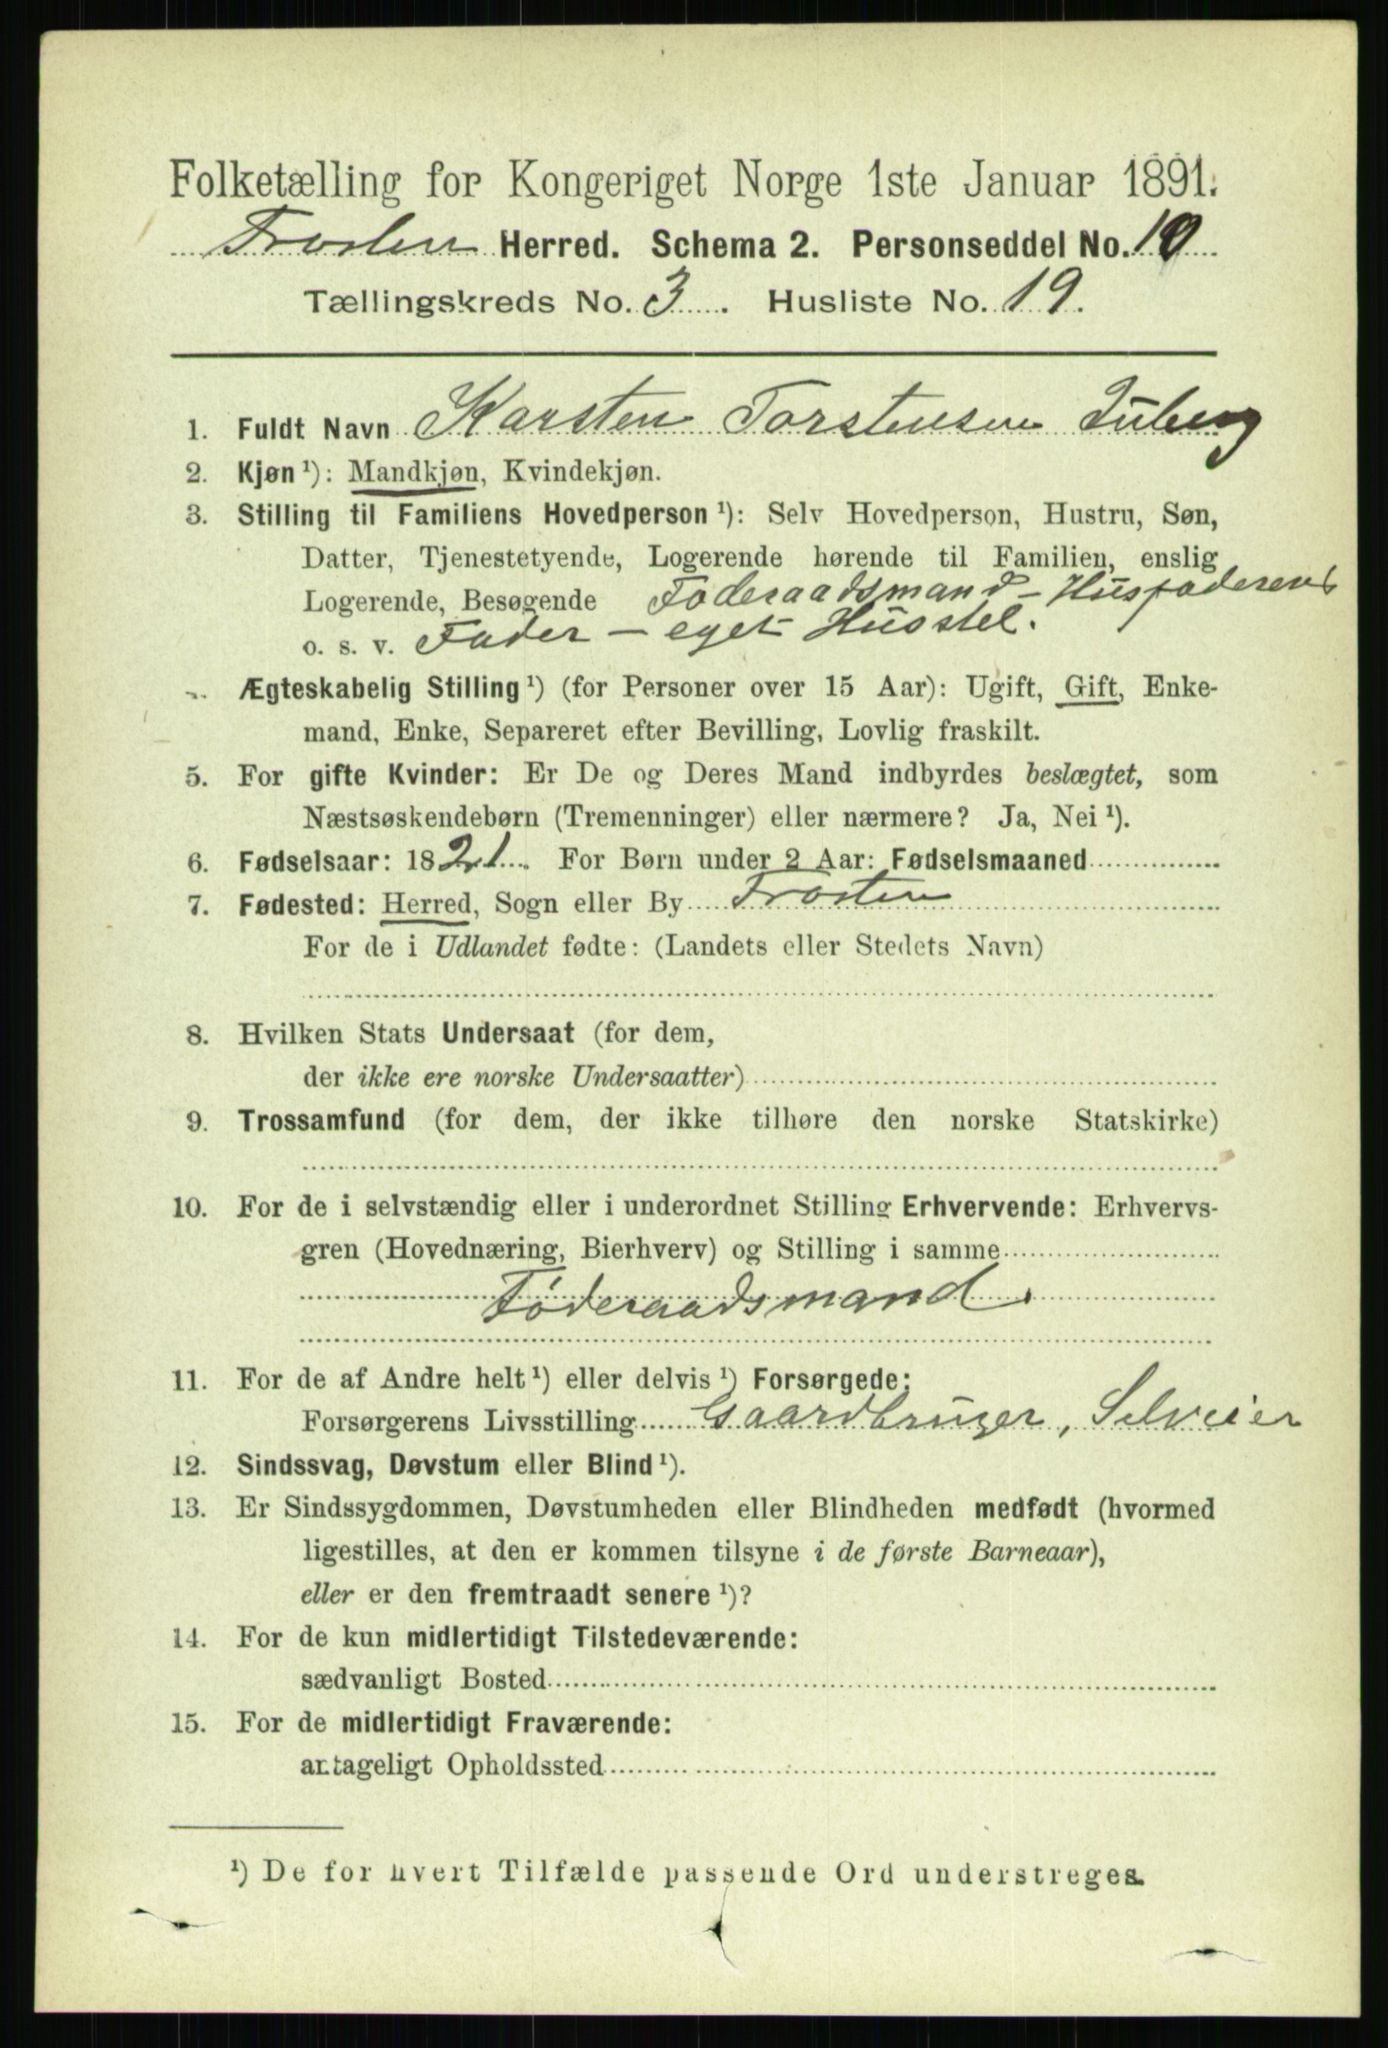 Folketælling for Kongeriget Norge 1ste Januar 1891.
Frosten Herred. Schema 2. Personseddel No. 10
Tællingskreds No. 3. Husliste No. 19.
1. Fuldt Navn Karsten Torstensen Juberg
2. Kjøn¹): Mandkjøn, Kvindekjøn.
3. Stilling til Familiens Hovedperson¹): Selv Hovedperson, Hustru, Søn,
Datter, Tjenestetyende, Logerende hørende til Familien, enslig
Logerende, Besøgende Føderaadsmand – Husfaderens
o. s. v. Fader – eget Husstel.
Ægteskabelig Stilling¹) (for Personer over 15 Aar): Ugift, Gift, Enke-
mand, Enke, Separeret efter Bevilling, Lovlig fraskilt.
5. For gifte Kvinder: Er De og Deres Mand indbyrdes beslægtet, som
Næstsøskendebørn (Tremenninger) eller nærmere? Ja, Nei¹).
6. Fødselsaar: 1821. For Børn under 2 Aar: Fødselsmaaned
7. Fødested: Herred, Sogn eller By Frosten
For de i Udlandet fødte: (Landets eller Stedets Navn)
8. Hvilken Stats Undersaat (for dem,
der ikke ere norske Undersaatter)
9. Trossamfund (for dem, der ikke tilhøre den norske Statskirke)
10. For de i selvstændig eller i underordnet Stilling Erhvervende: Erhvervs-
gren (Hovednæring, Bierhverv) og Stilling i samme
Føderaadsmand.
11. For de af Andre helt¹) eller delvis¹) Forsørgede:
Forsørgerens Livsstilling Gaardbruger, Selveier
12. Sindssvag, Døvstum eller Blind¹).
13. Er Sindssygdommen, Døvstumheden eller Blindheden medfødt (hvormed
ligestilles, at den er kommen tilsyne i de første Barneaar),
eller er den fremtraadt senere¹)?
14. For de kun midlertidigt Tilstedeværende:
sædvanligt Bosted
15. For de midlertidigt Fraværende:
antageligt Opholdssted
¹) De for hvert Tilfælde passende Ord understreges.